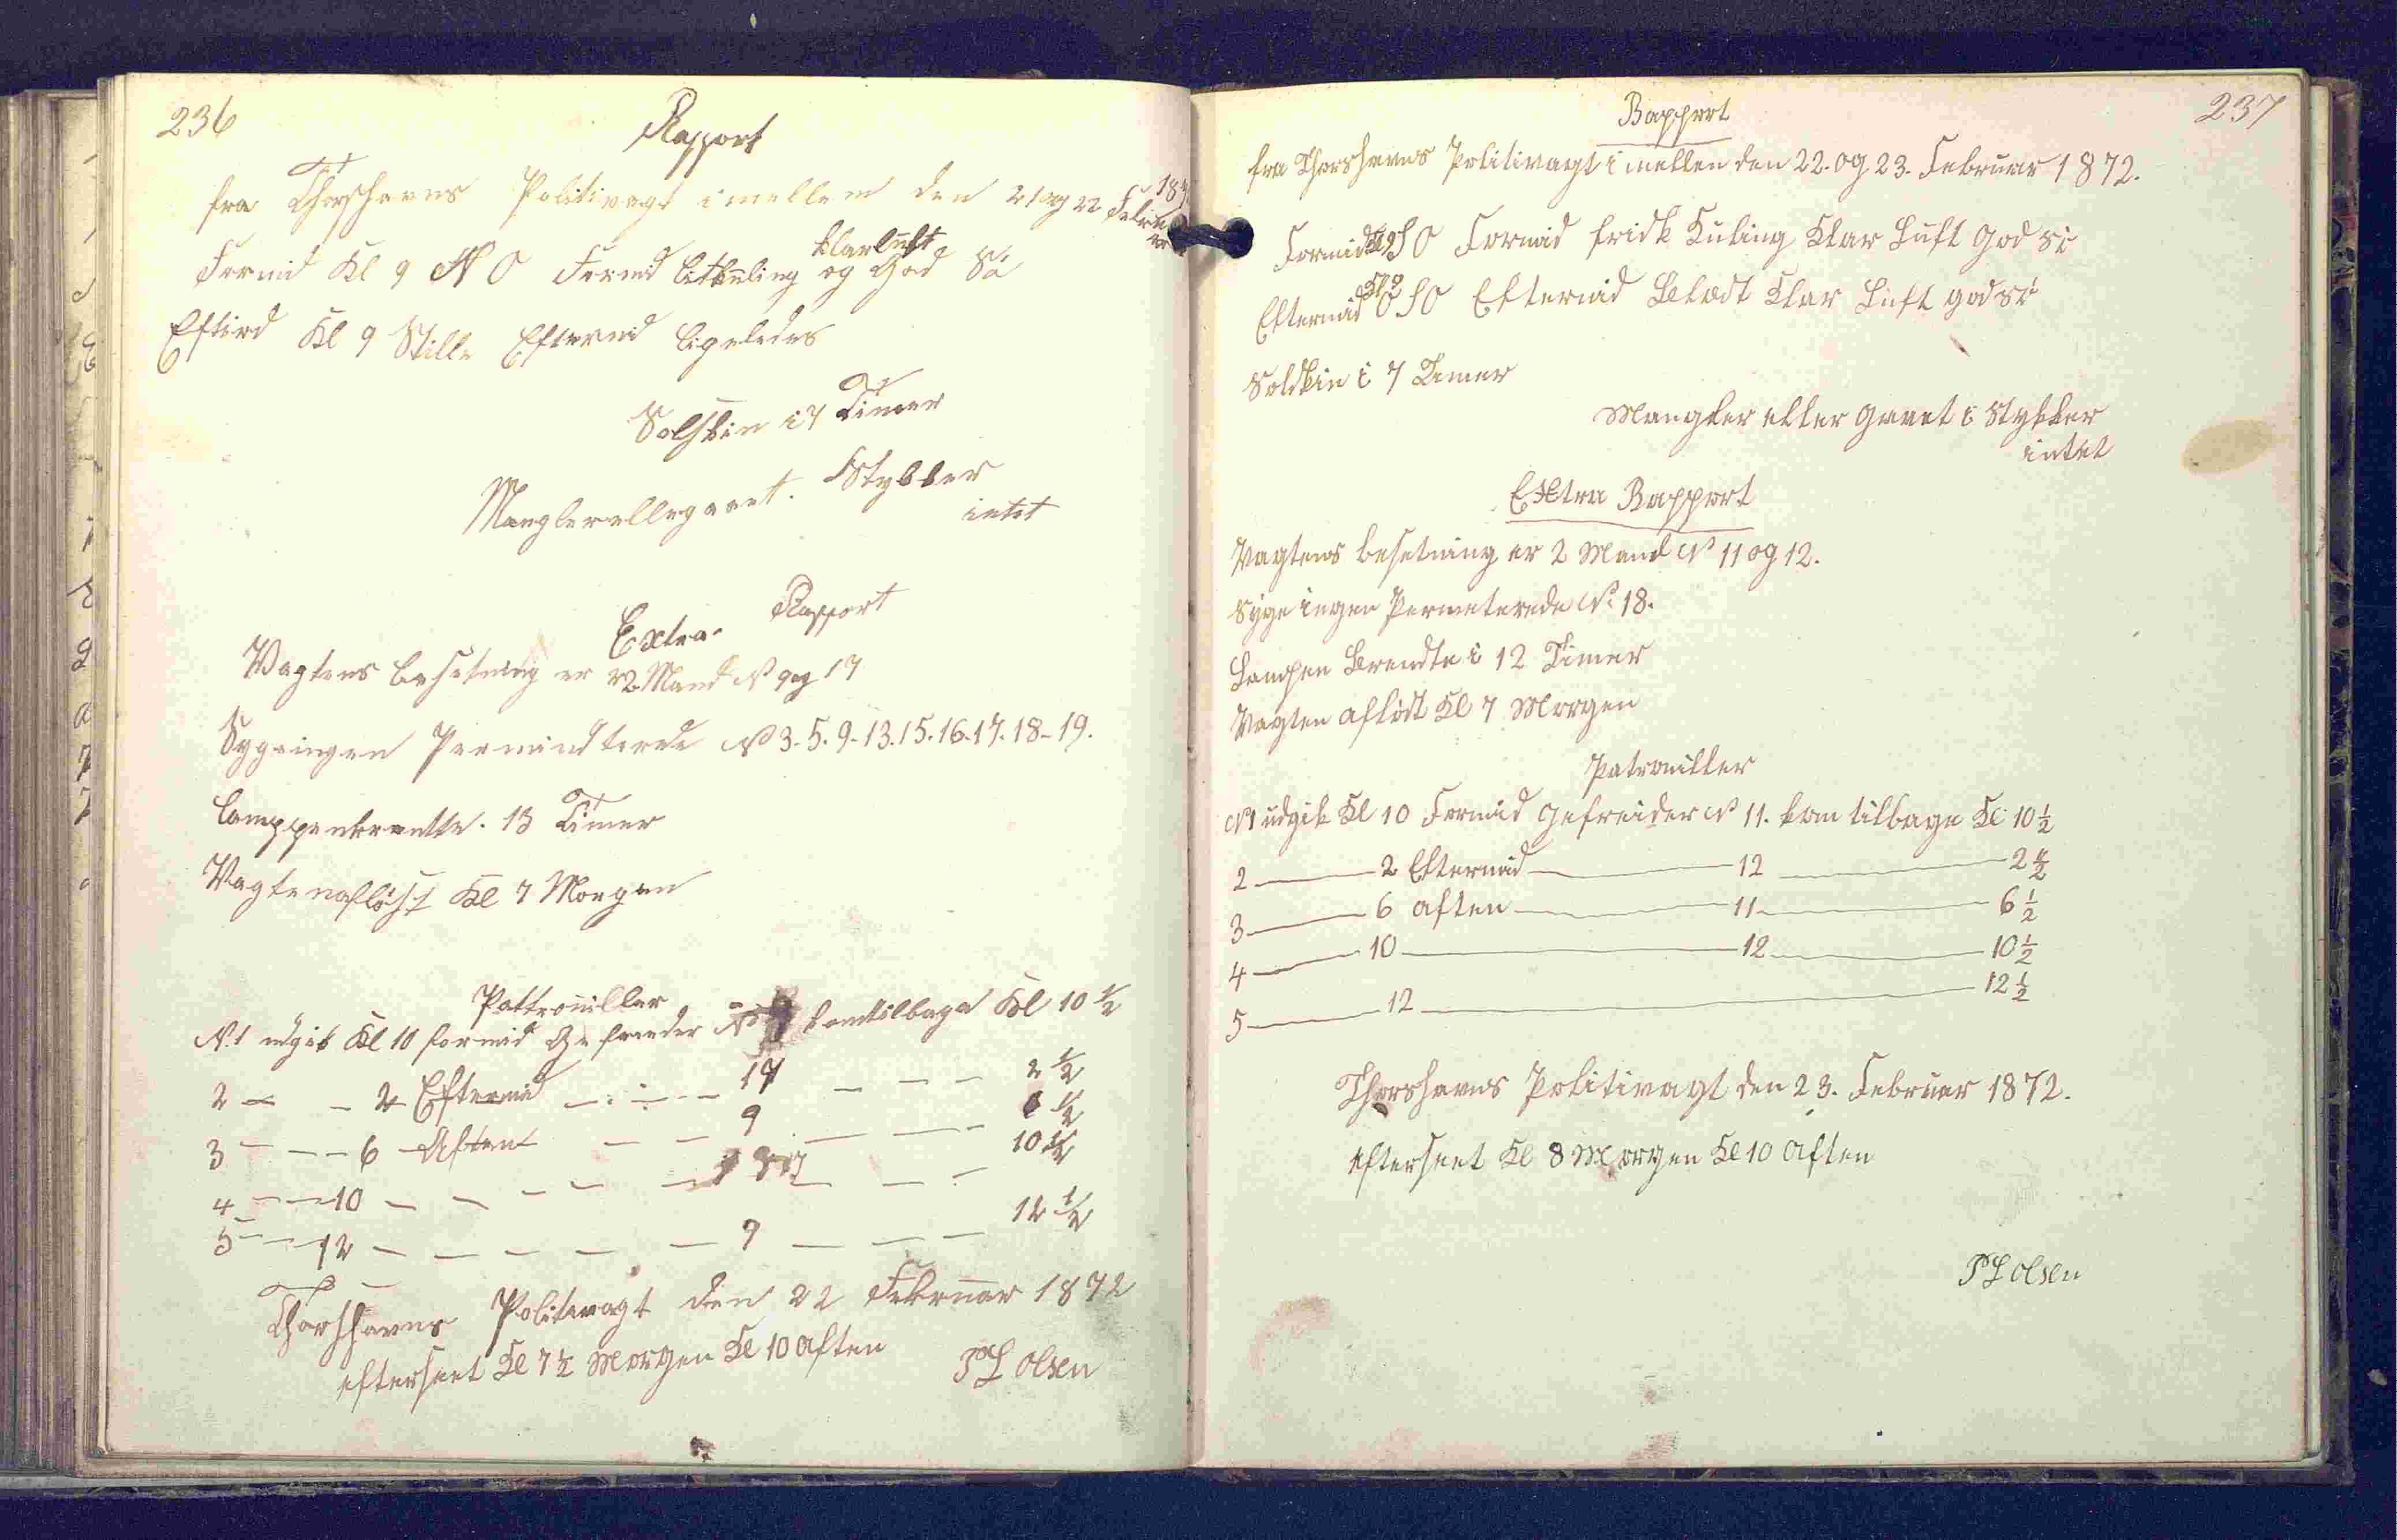 236
Rapport
fra Thorshavns Politivagt imellem den 21 og 22 Februar
Formid Kl 9 N O Formid litkuling klarluft og God Sö
Eftird Kl 9 Stille Eftermid ligeledes
Solskin i 7 Timer
Manglerellegaaet. Stykker
intet
Extra. Rapport
Vagtens besetning er 2 Mand No 9 og 17
Sygeingen Permindterede No 3. 5. 9. 13. 15. 16. 17. 18. 19.
Lamppenbrentte. 13 Timer
Vagtenaflöst Kl 7 Morgen
Pattrouiller
N. 1 udgik Kl 10 formid Gefreider No 9 komtilbage Kl 10 1/2
2 — — 2 Eftermid — — — 17 — — — 2 1/2
3 — — 6 Aften — — 9 — — — 6 1/2
4 — — 10 — — — — — 17 — — 10 1/2
5 — — 12 — — — — — 9 — — — 12 1/2
Thorshavns Politivagt den 22 Februar 1872
efterseet Kl 7 1/2 Morgen Kl 10 Aften
P L Olsen
237
Rapport
fra Thorshavns Politivagt i mellen den 22. og 23. Februar 1872.
Formid Kl 9 S O Formid fridsk Kuling Klar Luft God Sö
Efternid Kl 9 O S O Efternid Belædt Klar Luft god Sö
Soldskin i 7 Timer
Mangler eller Gaaet i Stykker
intet
Extra Rapport
Vagtens besetning er 2 Mand No 11 og 12.
Syge ingen Permeterede No. 18.
Lampen Brendte i 12 Timer
Vagten aflödt Kl 7 Morgen
Patrouiller
No 1 udgik Kl 10 Formid Gefreider No 11. kom tilbage Kl 10 1/2
2 — 2 Efternid — 12 — 2 1/2
3 — 6 Aften — 11 — 6 1/2
4 — 10 — 12 — 10 1/2
5 — 12 — 12 1/2
Thorshavns Politivagt den 23. Februar 1872.
efterseet Kl 8 Morgen Kl 10 Aften
P L Olsen